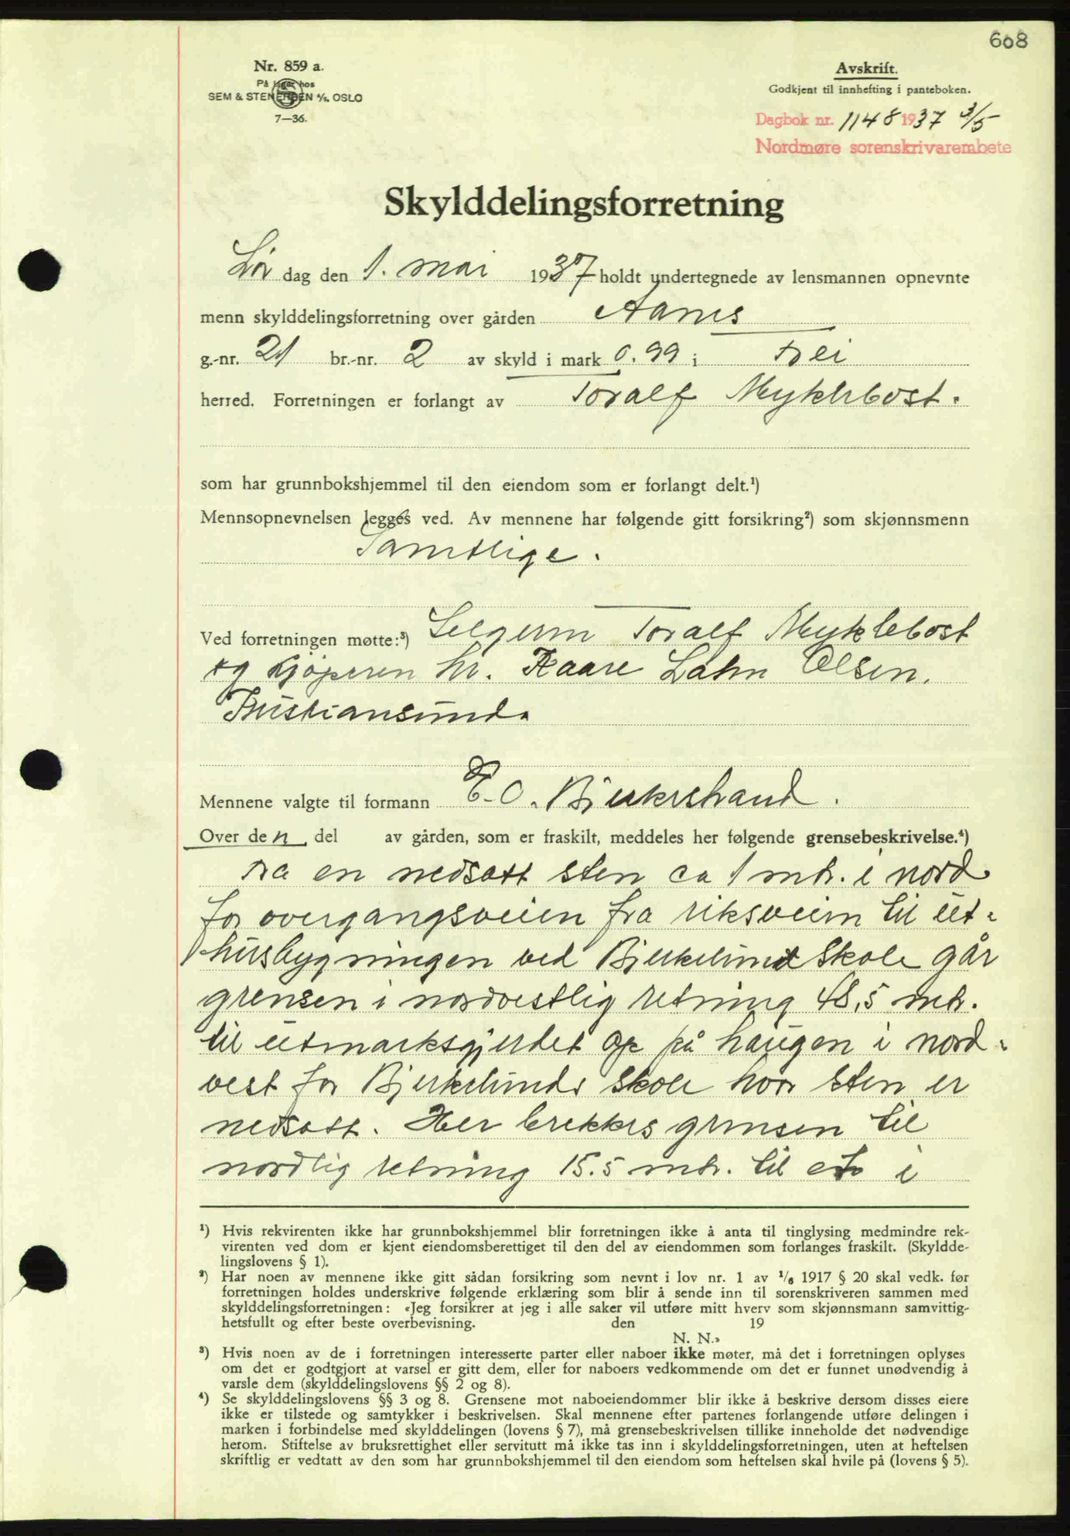 608
Nr. 859 a.
På lager hos
SEM & STENERSEN A/S. OSLO
7—36.
Avskrift.
Godkjent til innhefting i panteboken.
Dagbok nr. 1148 1937 3/5
Nordmøre sorenskrivarembete
Skylddelingsforretning
Lør dag den 1. mai 1937 holdt undertegnede av lensmannen opnevnte
menn skylddelingsforretning over gården Aanes
g.-nr. 21 br.-nr. 2 av skyld i mark 0.99 i Frei
herred. Forretningen er forlangt av Toralf Myklebost.
som har grunnbokshjemmel til den eiendom som er forlangt delt.¹)
Mennsopnevnelsen legges ved. Av mennene har følgende gitt forsikring²) som skjønnsmenn
Samtlige.
Ved forretningen møtte:³) Selgeren Toralf Myklebost
og kjøperen hr. Kaare Lahn Olsen,
Kristiansund.
Mennene valgte til formann E. O. Bjerkestrand.
Over den del av gården, som er fraskilt, meddeles her følgende grensebeskrivelse.⁴)
Fra en nedsatt sten ca 1 mtr. i nord
for overgangsveien fra riksveien til ut-
husbygningen ved Bjerkelund Skole går
grensen i nordvestlig retning 48,5 mtr.
til utmarksgjerdet op på haugen i nord-
vest for Bjerkelunds Skole hvor sten er
nedsatt. Her brekkes grensen til
nordlig retning 15.5 mtr. til et i
¹) Hvis rekvirenten ikke har grunnbokshjemmel blir forretningen ikke å anta til tinglysing medmindre rek-
virenten ved dom er kjent eiendomsberettiget til den del av eiendommen som forlanges fraskilt. (Skyldde-
lingslovens § 1).
²) Har noen av mennene ikke gitt sådan forsikring som nevnt i lov nr. 1 av 1/6 1917 § 20 skal vedk. før
forretningen holdes underskrive følgende erklæring som blir å sende inn til sorenskriveren sammen med
skylddelingsforretningen: «Jeg forsikrer at jeg i alle saker vil utføre mitt hverv som skjønnsmann samvittig-
hetsfullt og efter beste overbevisning. den 19
N. N.»
³) Hvis noen av de i forretningen interesserte parter eller naboer ikke møter, må det i forretningen oplyses
om det er godtgjort at varsel er gitt dem, eller for naboers vedkommende om det er funnet unødvendig å
varsle dem (skylddelingslovens §§ 2 og 8).
⁴) Se skylddelingslovens §§ 3 og 8. Grensene mot naboeiendommer blir ikke å beskrive dersom disses eiere
ikke er tilstede og samtykker i beskrivelsen. Skal mennene efter partenes forlangende utføre delingen i
marken i forbindelse med skylddelingen (lovens § 7), må grensebeskrivelsen tillike inneholde det nødvendige
herom. Stiftelse av bruksrettighet eller servitutt må ikke tas inn i skylddelingsforretningen, uten at heftelsen
skriftlig er vedtatt av den som har grunnbokshjemmel til den eiendom som heftelsen skal hvile på (lovens § 5).